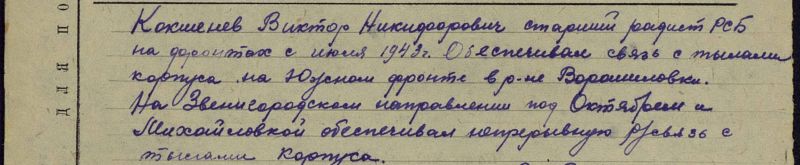 Кокшенев Виктор Никифорович старший радист РСБ
на фронтах с июля 1943г. Обеспечивал связь с тылами
корпуса на Южном фронте в р-не Ворошиловки.
На Звенигородском направлении под Октябрем и
Михайловкой обеспечивал непрерывную р/связь с
тылами корпуса.
ДЛЯ ПО